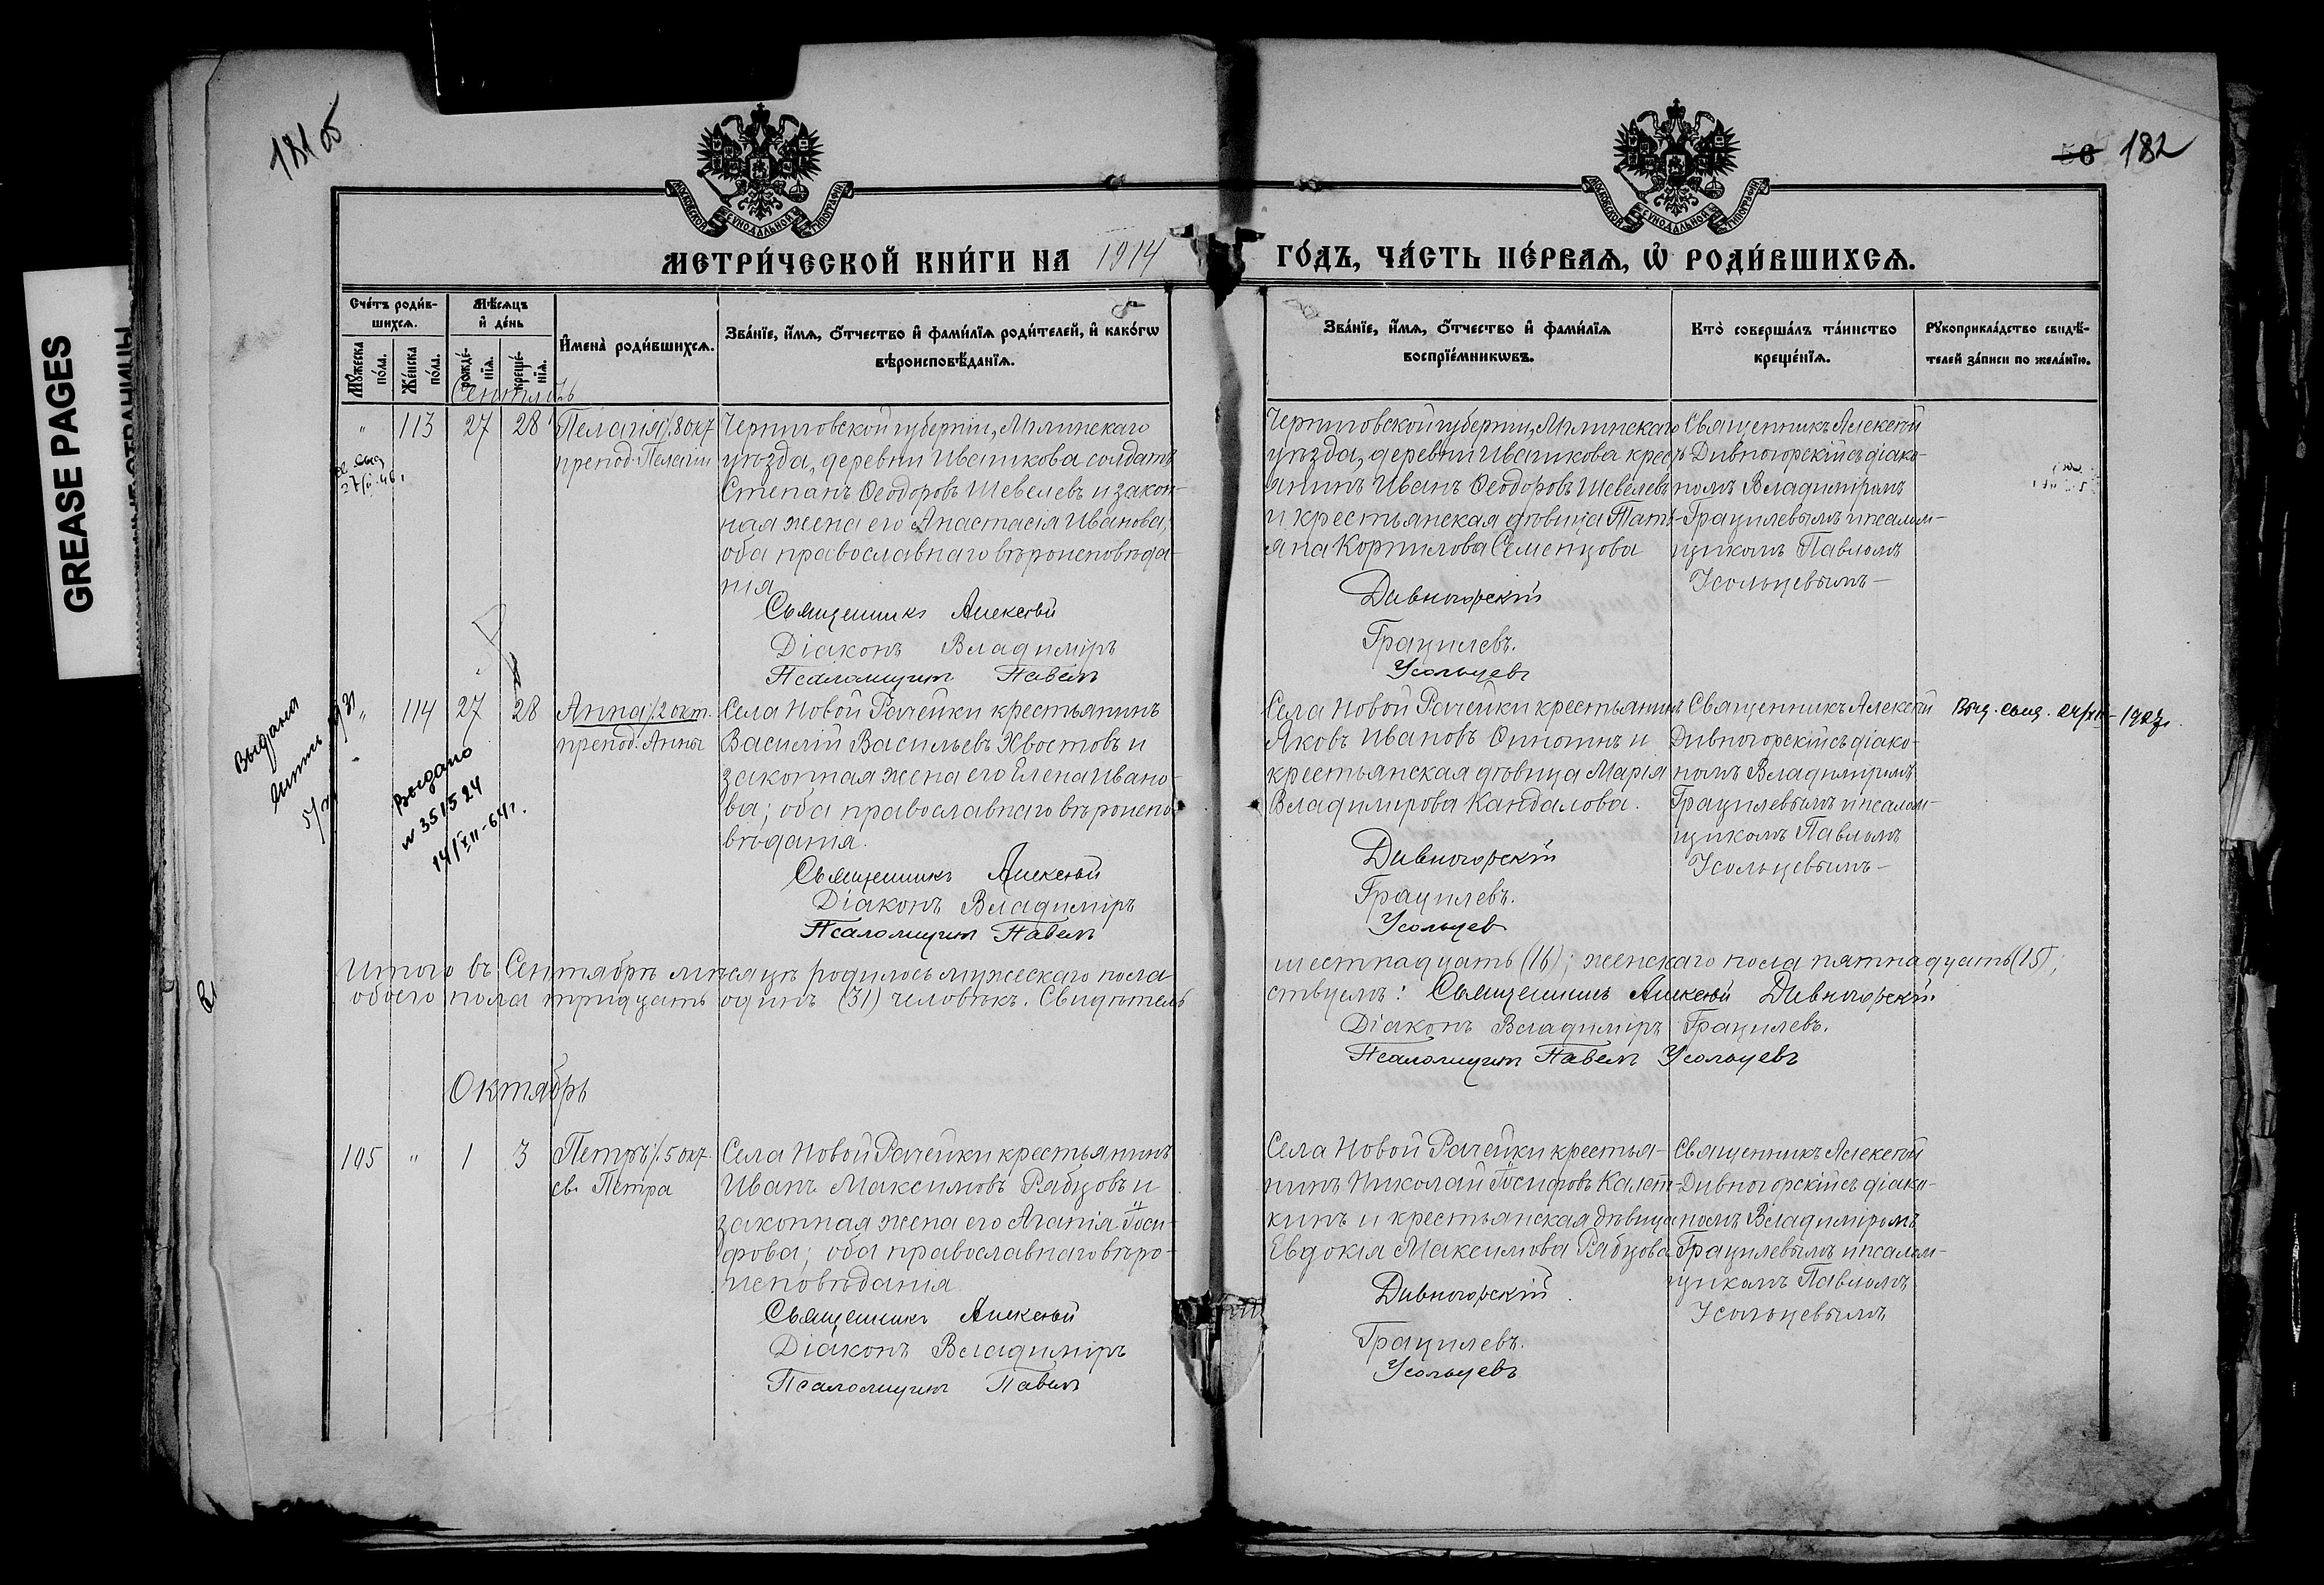 181 об
56 182
GREASE PAGES
МОСКОВСКОЙ СУНОДАЛЬНОЙ ТИПОГРАФІИ
МОСКОВСКОЙ СУНОДАЛЬНОЙ ТИПОГРАФІИ
МЕТРИ́ЧЕСКОЙ КНИ́ГИ НА 1914
ГО́ДЪ, ЧА́СТЬ ПЕ́РВАѦ, Ѡ҆ РОДИ́ВШИХСѦ.
Сче́тъ роди́в-
шихсѧ.
Мѣ́сѧцъ
и҆ де́нь
Мꙋ́жеска по́ла.
Же́нска по́ла.
рожде́-нїѧ.
креще́-нїѧ.
И҆мена̀ роди́вшихсѧ.
Зва́нїе, и҆́мѧ, ѻ҆́тчество и҆ фами́лїѧ роди́телей, и҆ како́гѡ
вѣроисповѣ́данїѧ.
Зва́нїе, и҆́мѧ, ѻ҆́тчество и҆ фами́лїѧ
воспрїе́мникѡвъ.
Кто̀ соверша́лъ та́инство
креще́нїѧ.
Рꙋкоприкла́дство свидѣ́-
телей за́писи по жела́нїю.
Сентябрь
" 113 27 28 Пелагія/8 окт
препод. Пелагіи
Черниговской губерніи, Мглинскаго
уѣзда, деревни Ивашкова солдатъ
Степанъ Ѳеодоровъ Шевелевъ и закон-
ная жена его Анастасія Иванова,
оба православнаго вѣроисповѣда-
нія
Священникъ Алексѣй
Діаконъ Владиміръ
Псаломщикъ Павелъ
Черниговской губерніи, Мглинскаго
уѣзда, деревни Ивашкова кресть-
янинъ Иванъ Ѳеодоровъ Шевелевъ
и крестьянская дѣвица Тать-
яна Корнилова Семенцова
Дивногорскій
Грацилевъ.
Усольцевъ
Священникъ Алексѣй
Дивногорскій съ діако-
номъ Владиміромъ
Грацилевымъ и псалом-
щикомъ Павломъ
Усольцевымъ
Выдана
Выдано
№ 351524
14/VIII-64 г.
" 114 27 28 Анна/2 окт.
препод. Анны
Села Новой Рачейки крестьянинъ
Василій Васильевъ Хвостовъ и
законная жена его Елена Ивано-
ва; оба православнаго вѣроиспо-
вѣданія.
Священникъ Алексѣй
Діаконъ Владиміръ
Псаломщикъ Павелъ
Села Новой Рачейки крестьянинъ
Яковъ Ивановъ и
крестьянская дѣвица Марія
Владимирова Кандалова.
Дивногорскій
Грацилевъ.
Усольцев
Священникъ Алексѣй
Дивногорскій съ діако-
номъ Владиміромъ
Грацилевымъ и псалом-
щикомъ Павломъ
Усольцевымъ
Выд. свид.
Итого въ Сентябрѣ мѣсяцѣ родилось мужескаго пола шестнадцать (16); женскаго пола пятнадцать (15);
обоего пола тридцать одинъ (31) человѣкъ. Свидѣтель-ствуемъ: Священникъ Алексѣй Дивногорскій
Діаконъ Владиміръ Грацилевъ.
Псаломщикъ Павелъ Усольцевъ
Октябрь
105 " 1 3 Петръ/5 окт.
св. Петра
Села Новой Рачейки крестьянинъ
Иванъ Максимовъ Рябцовъ и
законная жена его Агапія Іоси-
фова; оба православнаго вѣро-
исповѣданія
Священникъ Алексѣй
Діаконъ Владиміръ
Псаломщикъ Павелъ
Села Новой Рачейки крестья-
нинъ Николай Іосифовъ
кинъ и крестьянская дѣвица
Евдокія Максимова Рябцова
Дивногорскій
Грацилевъ.
Усольцевъ
Священникъ Алексѣй
Дивногорскій съ діако-
номъ Владиміромъ
Грацилевымъ и псалом-
щикомъ Павломъ
Усольцевымъ